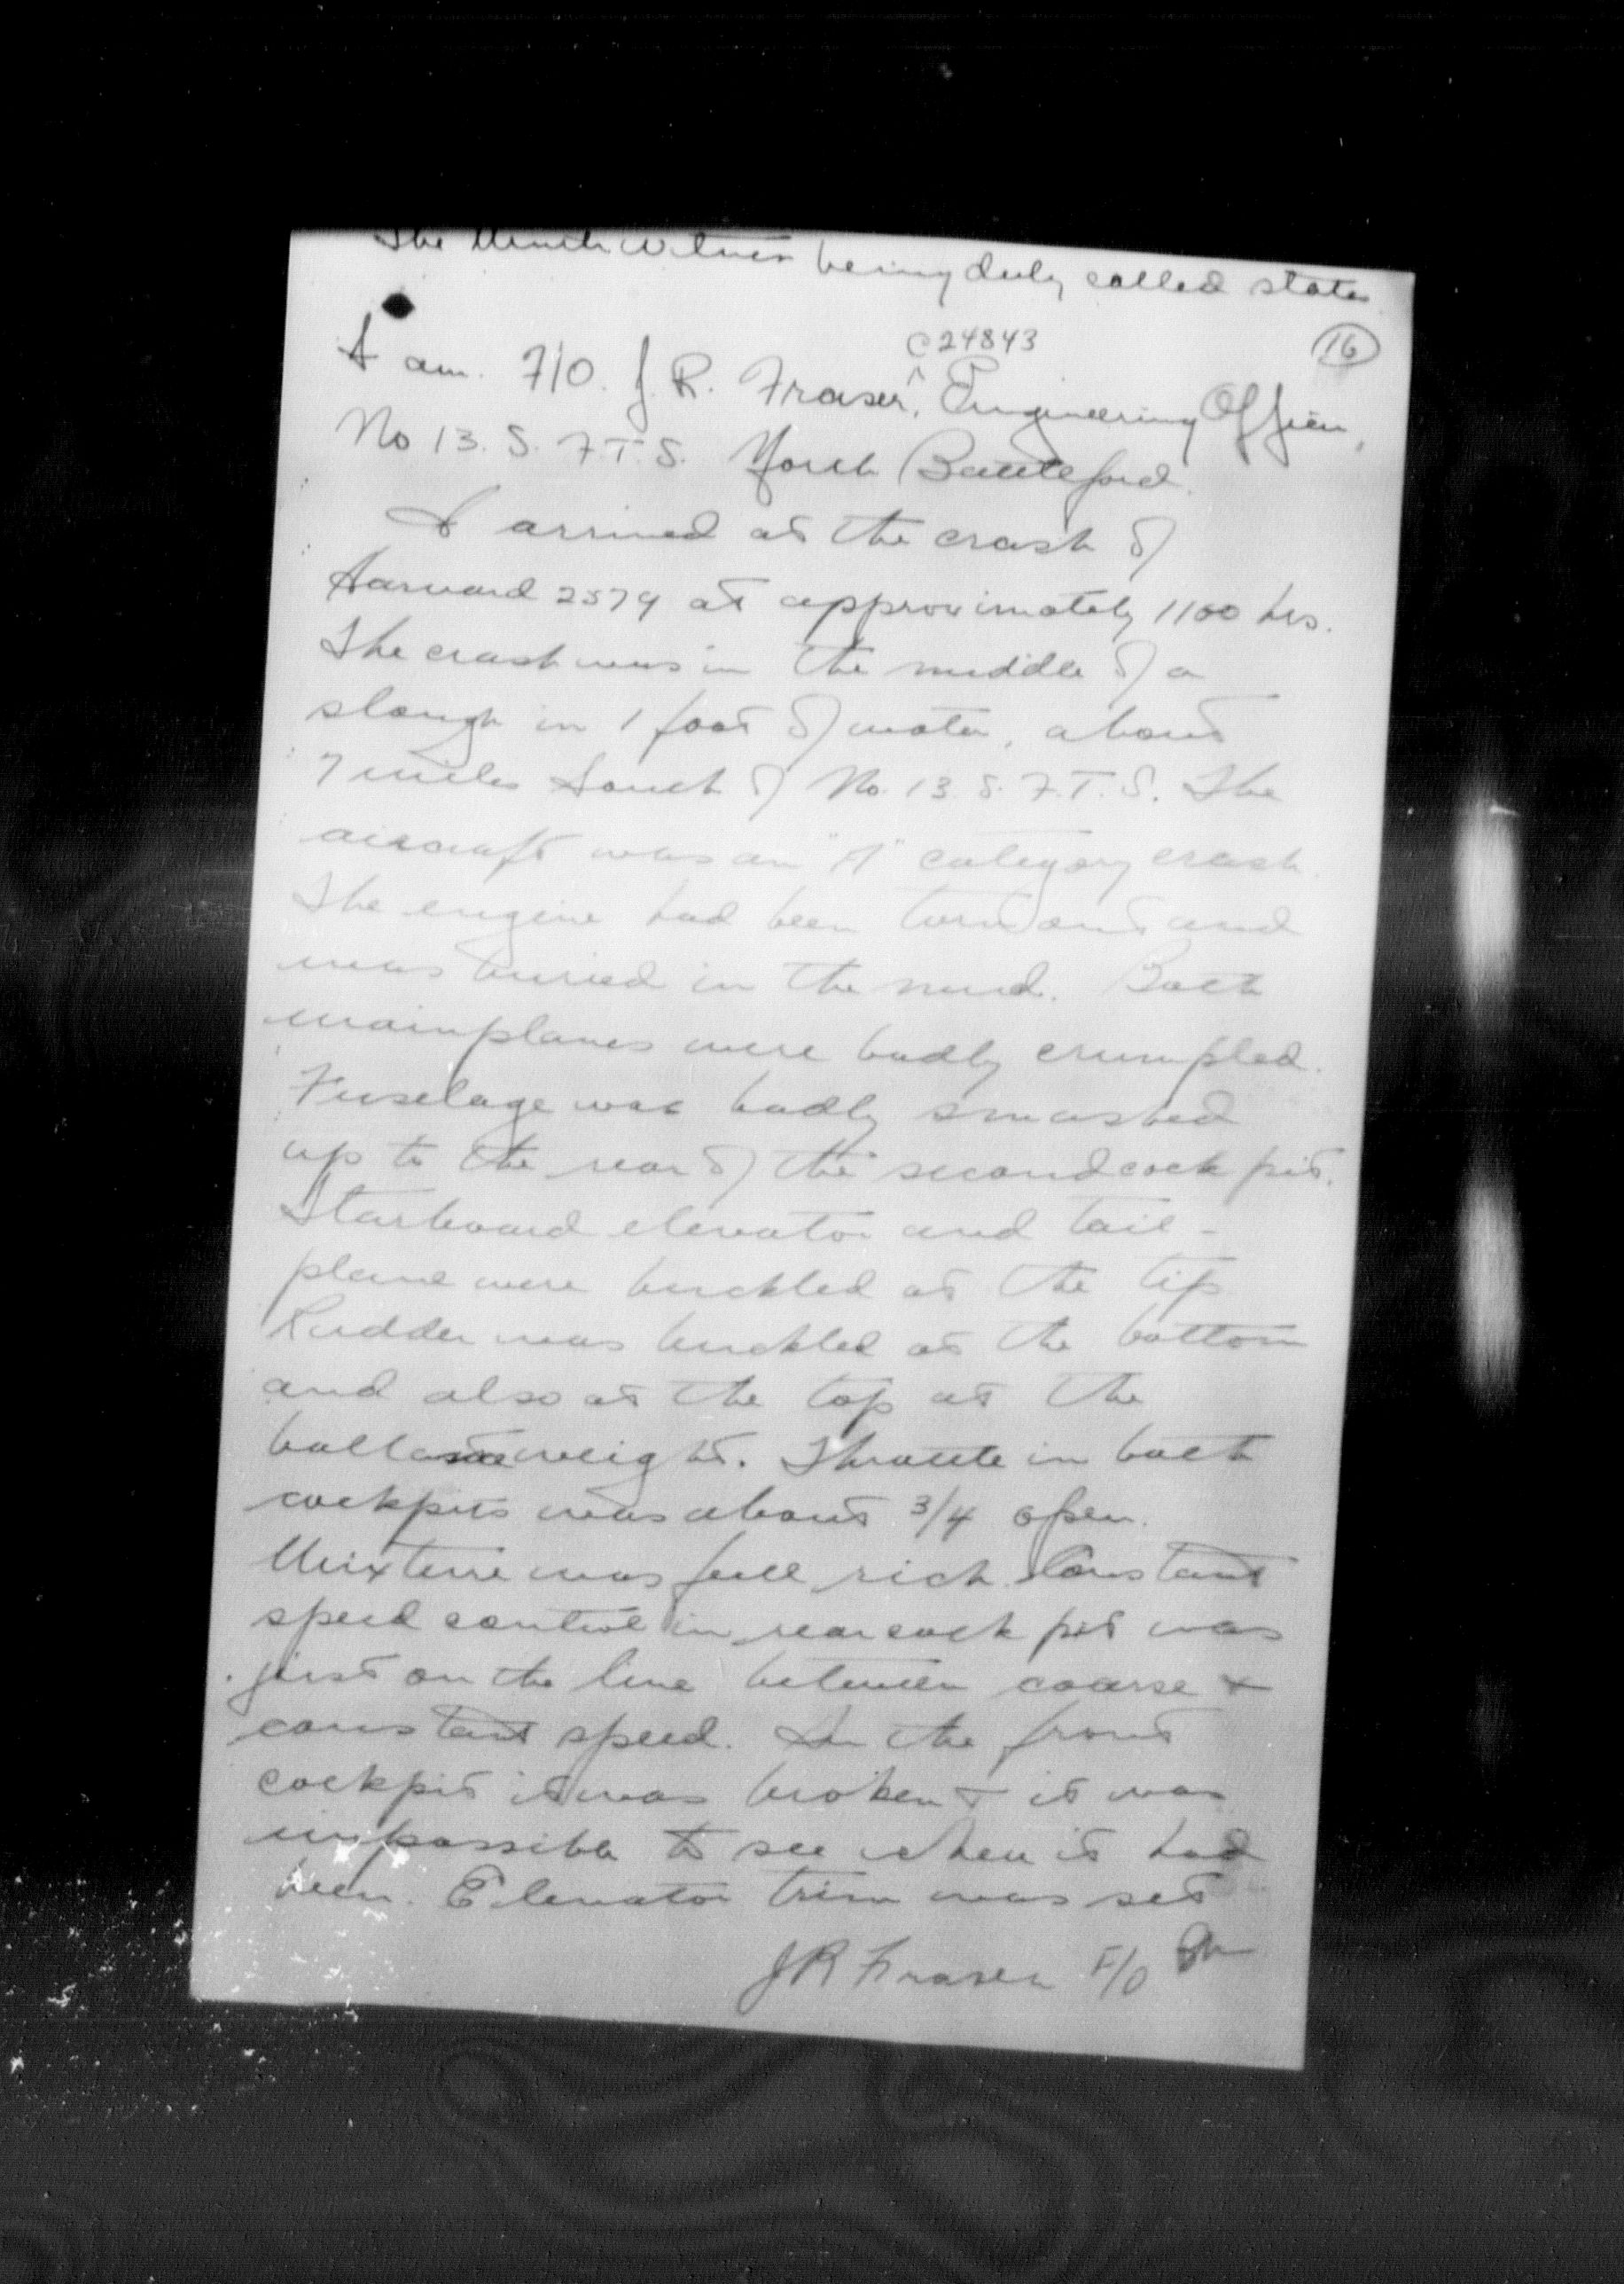 The Ninth Witness being duly called states
16
C24843
I am F/O. J. R. Fraser, Engineering Officer,
No 13. S. F.T.S. North Battleford.
I arrived at the crash of
Harvard 2579 at approximately 1100 hrs.
The crash was in the middle of a
slough in 1 foot of water, about
7 miles South of No. 13. S. F. T. S. The
aircraft was an "A" category crash.
The engine had been torn out and
was buried in the mud. Both
mainplanes were badly crumpled.
Fuselage was badly smashed
up to the rear of the second cock pit.
Starboard elevator and tail-
plane were buckled at the tip
Rudder was buckled at the bottom
and also at the top at the
weight. Throttle in both
cockpits was about 3/4 open.
Mixture was full rich. Constant
speed control in rear cock pit was
just on the line between coarse &
constant speed. In the front
cockpit it was broken & it was
impossible to see where it had
been. Elevator trim was set
JR Fraser F/O